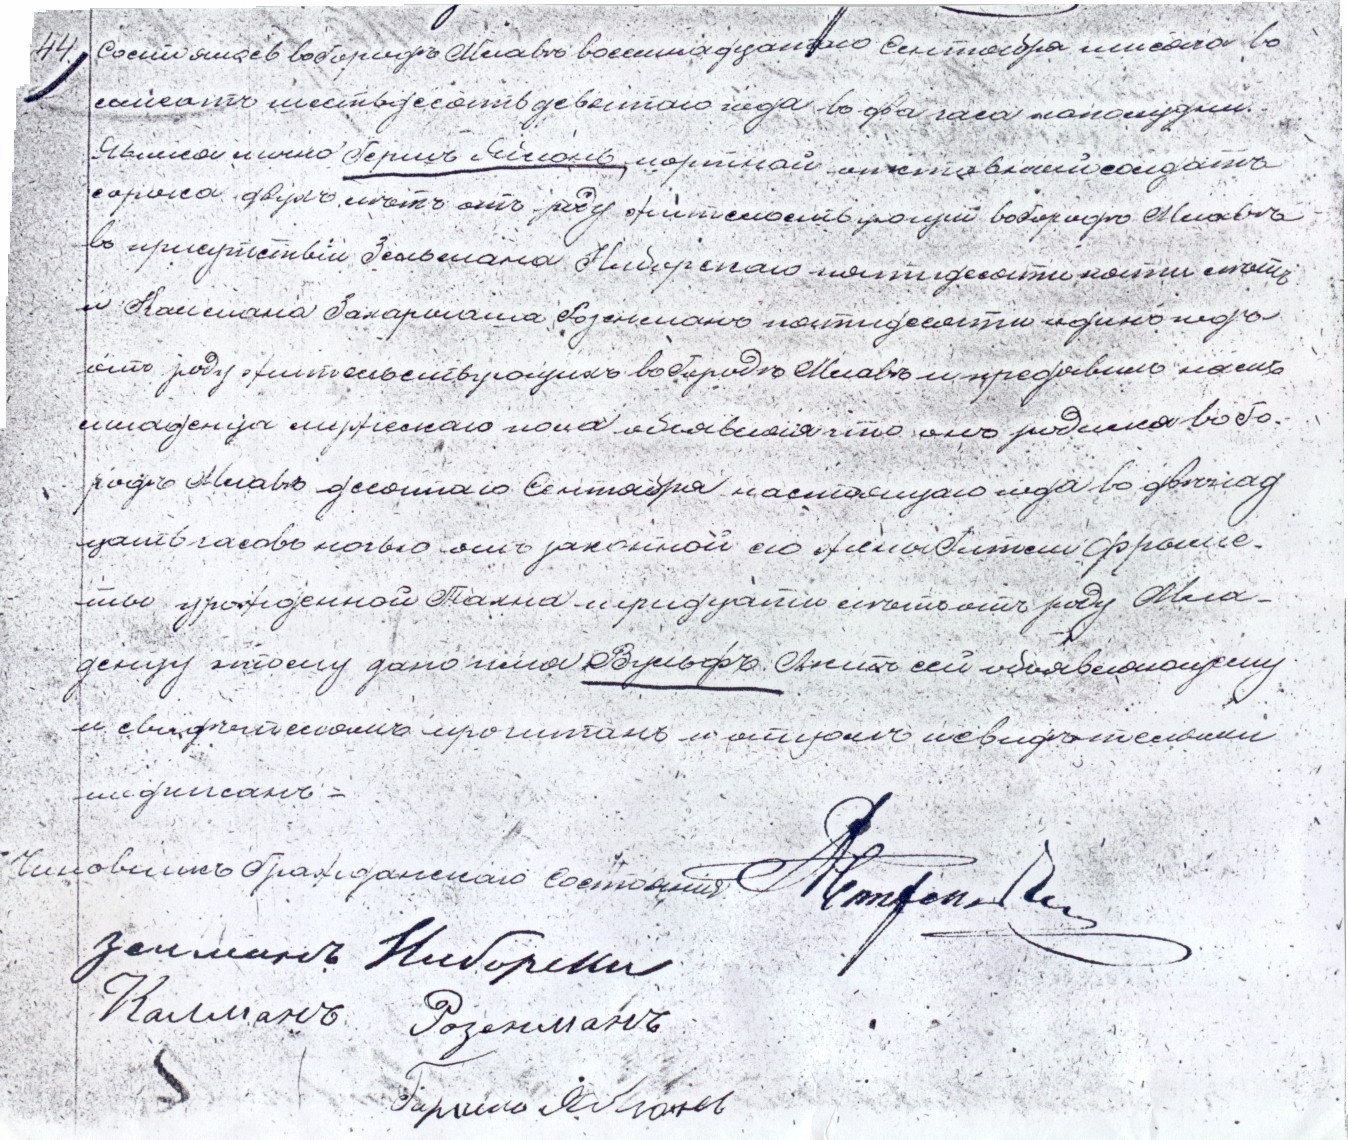 44.
Состоялось въ городѣ Млавѣ восемнадцатаго Сентября тысяча во
семсотъ шестьдесятъ девятаго года въ два часа пополудни.
Явился лично Гершъ портной отставной солдатъ
сорока двухъ лѣтъ отъ роду жительствующій въ городѣ Млавѣ
въ присутствіи Зельмана Ниборскаго пятидесяти пяти лѣтъ
и Кальмана Розенмана пятидесяти одинъ годъ
отъ роду жительствующихъ въ городѣ Млавѣ и предъявилъ намъ
младенца мужескаго пола объявляя что онъ родился въ го-
родѣ Млавѣ десятаго Сентября настоящаго года въ двѣнад
цать часовъ ночью отъ законной его жены Фрыме-
ты урожденной тридцати лѣтъ отъ роду Мла-
денцу этому дано имя Вульфъ. Актъ сей объявляющему
и свидѣтелямъ прочитанъ и отцомъ и свидѣтелями
подписанъ =
Чиновникъ Гражданскаго Состоянія
Зелманъ Ниборски
Калманъ Розенманъ